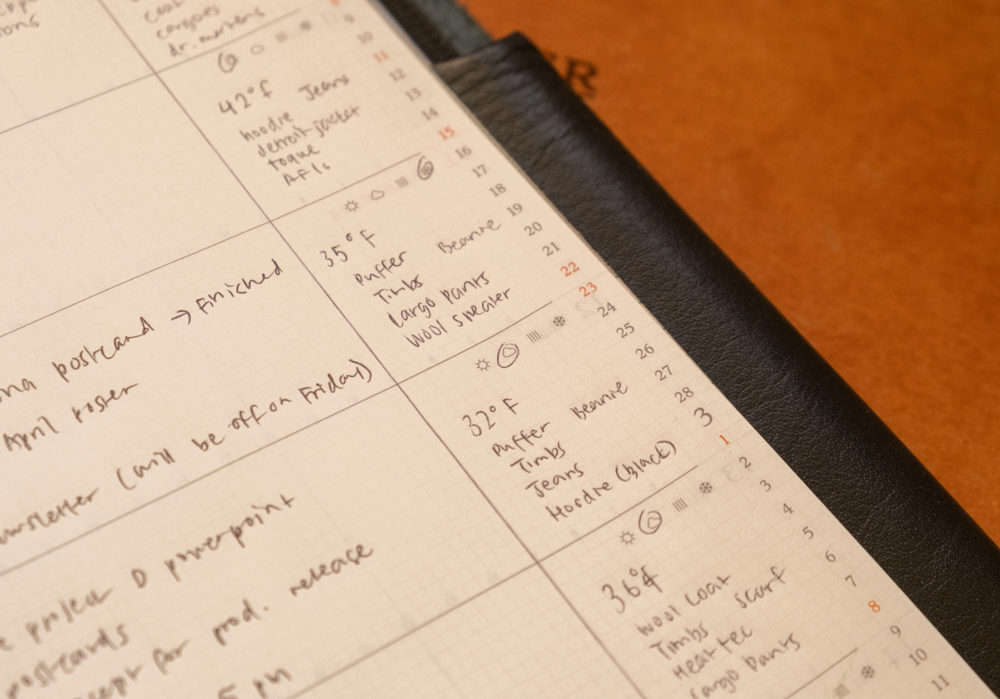 dr. martens
42°F
hoodie Jeans
detroit jacket
toque
AF1s
35°F
Puffer Beanie
Timbs
Cargo Pants
Wool sweater
postcard → Finished
April roster
(will be off on Friday)
32°F
Puffer Beanie
Timbs
Jeans
Hoodie (black)
project D powerpoint
postcards
for prod. release
5 pm
36°F
Wool Coat
Timbs Scarf
Heat tec
Cargo Pants
9
10
11
12
13
14
15
16
17
18
19
20
21
22
23
24
25
26
27
28
3
1
2
3
4
5
6
7
8
9
10
11
ER